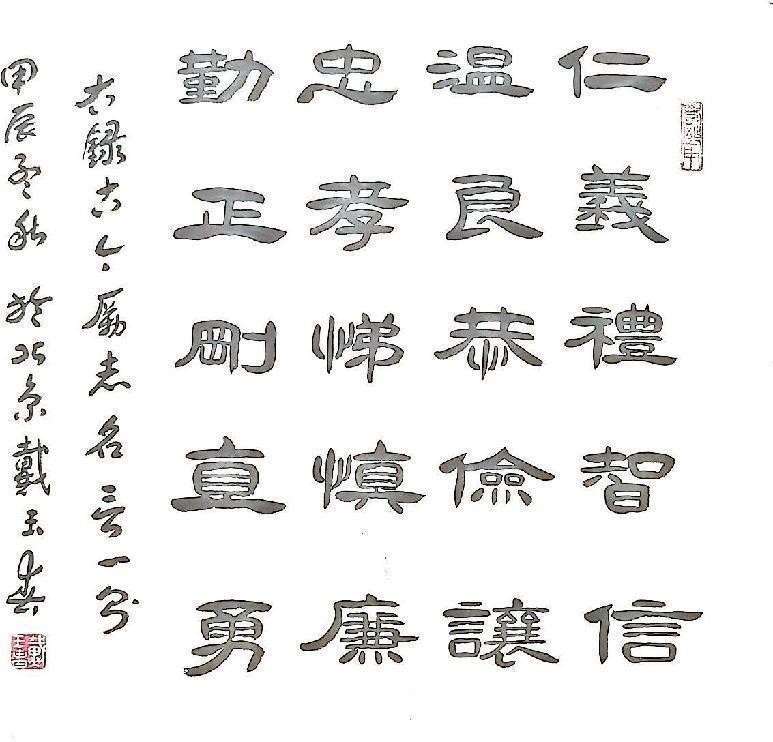 仁義禮智信
温良恭儉讓
忠孝悌慎廉
勤正剛直勇
右録古今勵志名言一則
甲辰孟秋於北京戴玉春